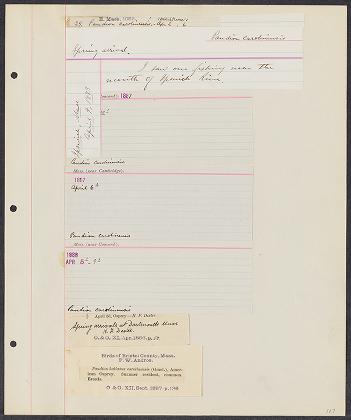 E. Mass. 1888.
28 Pandion carolinensis. Apr. 2, 6
Pandion carolinensis
Spring arrival.
I saw one fishing near the
mouth of Ipswich River
Ipswich, Mass
April 9, 1888
1887
Pandion carolinensis
Mass. (near Cambridge).
1887
April 6th
Pandion carolinensis
Mass. (near Concord).
1888
APR 5th - 9th
Pandion carolinensis
April 26, Osprey.—
Spring arrivals at Dartmouth Mass.
O. & O. XI, Apr. 1886. p.
Birds of Bristol County, Mass.
F. W. Andros.
Pandion haliaetus carolinensis (Gmel.), American Osprey.
Summer resident, common.
Breeds.
O. & O. XII. Sept. 1887 p. 138